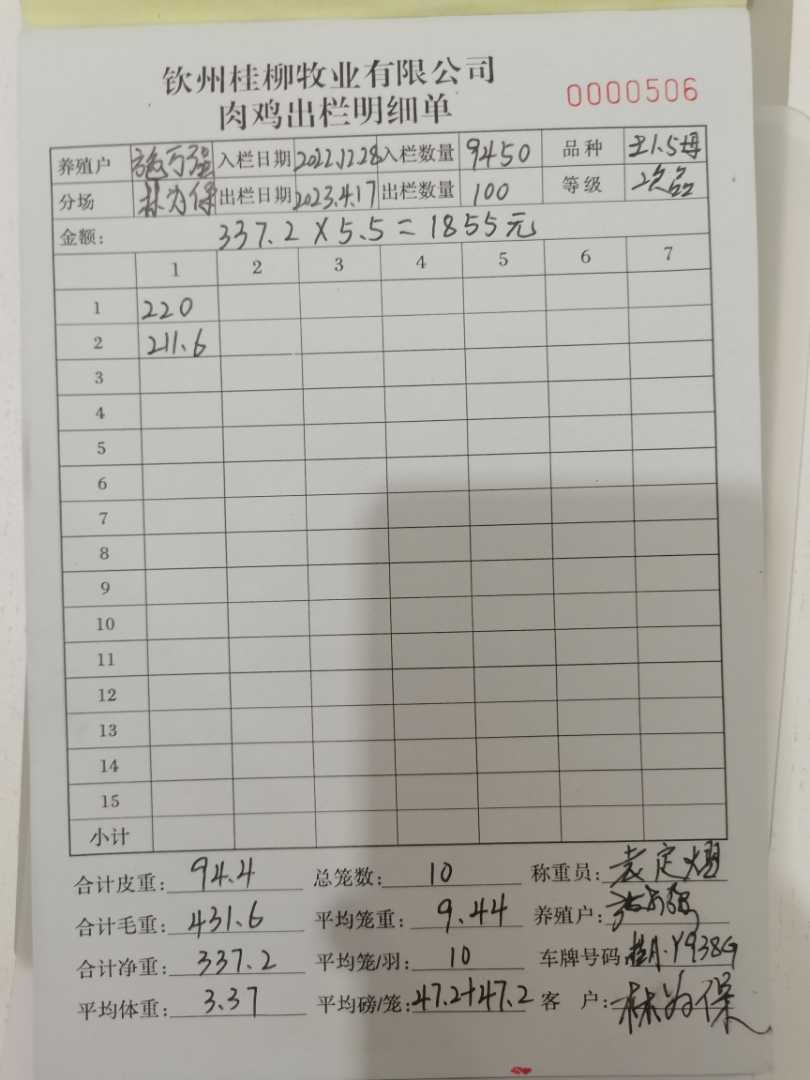 钦州桂柳牧业有限公司
肉鸡出栏明细单 0000506
养殖户 施万强 入栏日期 2022.12.28 入栏数量 9450 品种 土1.5母
分场 林为保 出栏日期 2023.4.17 出栏数量 100 等级 次品
金额: 337.2 X 5.5 = 1855元
1 2 3 4 5 6 7
1 220
2 211.6
3
4
5
6
7
8
9
10
11
12
13
14
15
小计
合计皮重: 94.4 总笼数: 10 称重员: 袁定
合计毛重: 431.6 平均笼重: 9.44 养殖户: 施万强
合计净重: 337.2 平均笼/羽: 10 车牌号码: Y938G
平均体重: 3.37 平均磅/笼: 47.2+47.2 客 户: 林为保